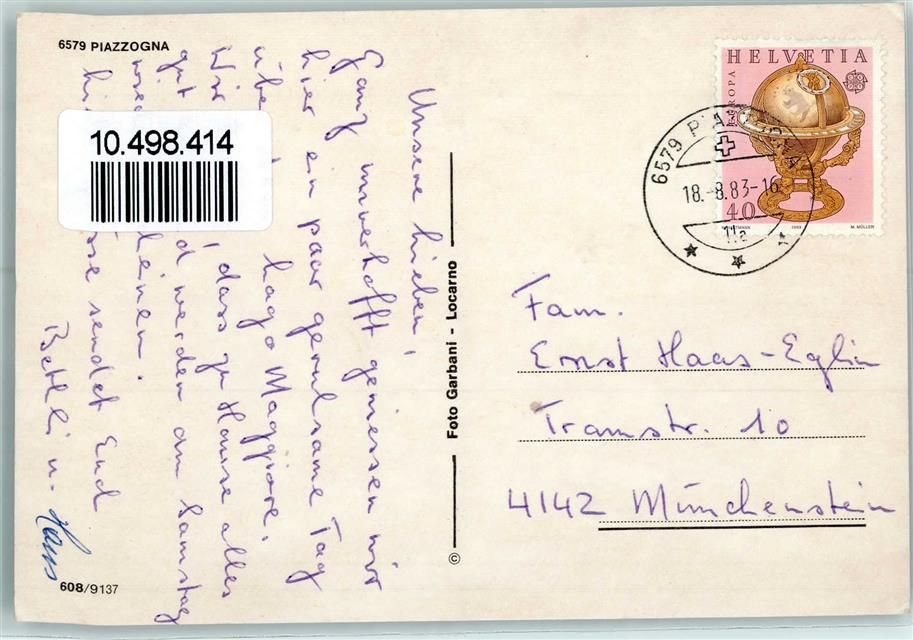 6579 PIAZZOGNA
10.498.414
Unsere Lieben,
Ganz unverhofft geniessen wir
hier ein paar geruhsame Tag
übe Lago Maggiore.
Wir , dass zu Hause alles
gut d werden am Samstag
leinen.
sse sendet Euch
Bethli u. Hans
608/9137
© Foto Garbani - Locarno
HELVETIA
EUROPA
40
M. MÜLLER
6579 PIAZZOGNA
18.-8.83-16
Fam.
Ernst Haas-Eglin
Tramstr. 10
4142 Münchenstein